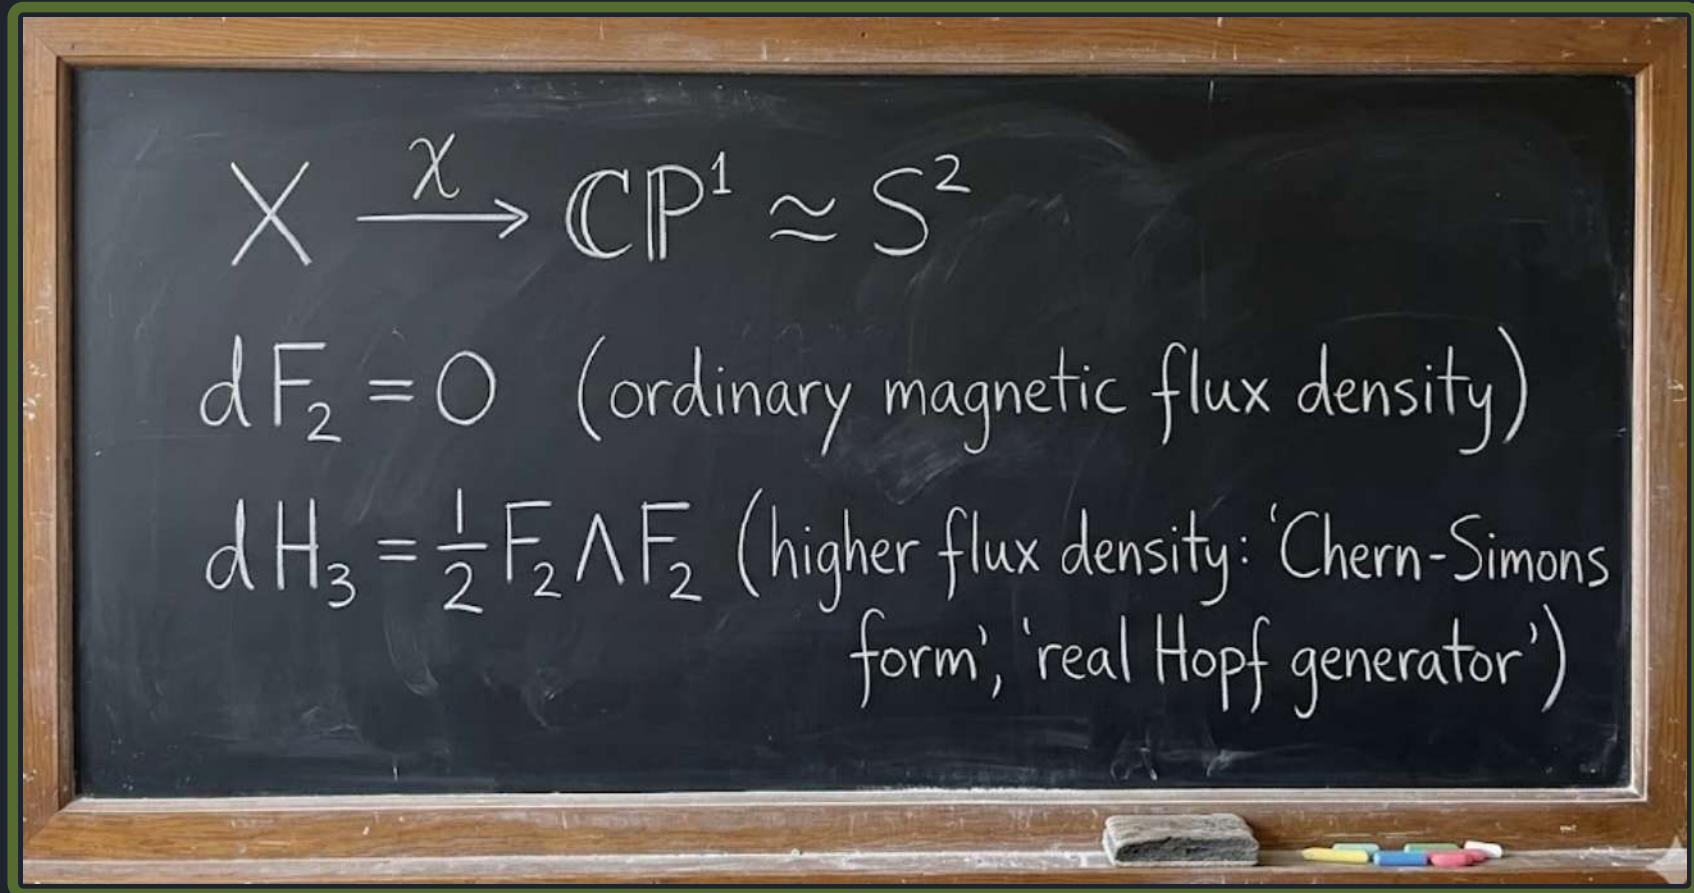 X →^χ ℂℙ¹ ≈ S²
dF₂ = 0 (ordinary magnetic flux density)
dH₃ = ½ F₂ ∧ F₂ (higher flux density: 'Chern-Simons
form', 'real Hopf generator')